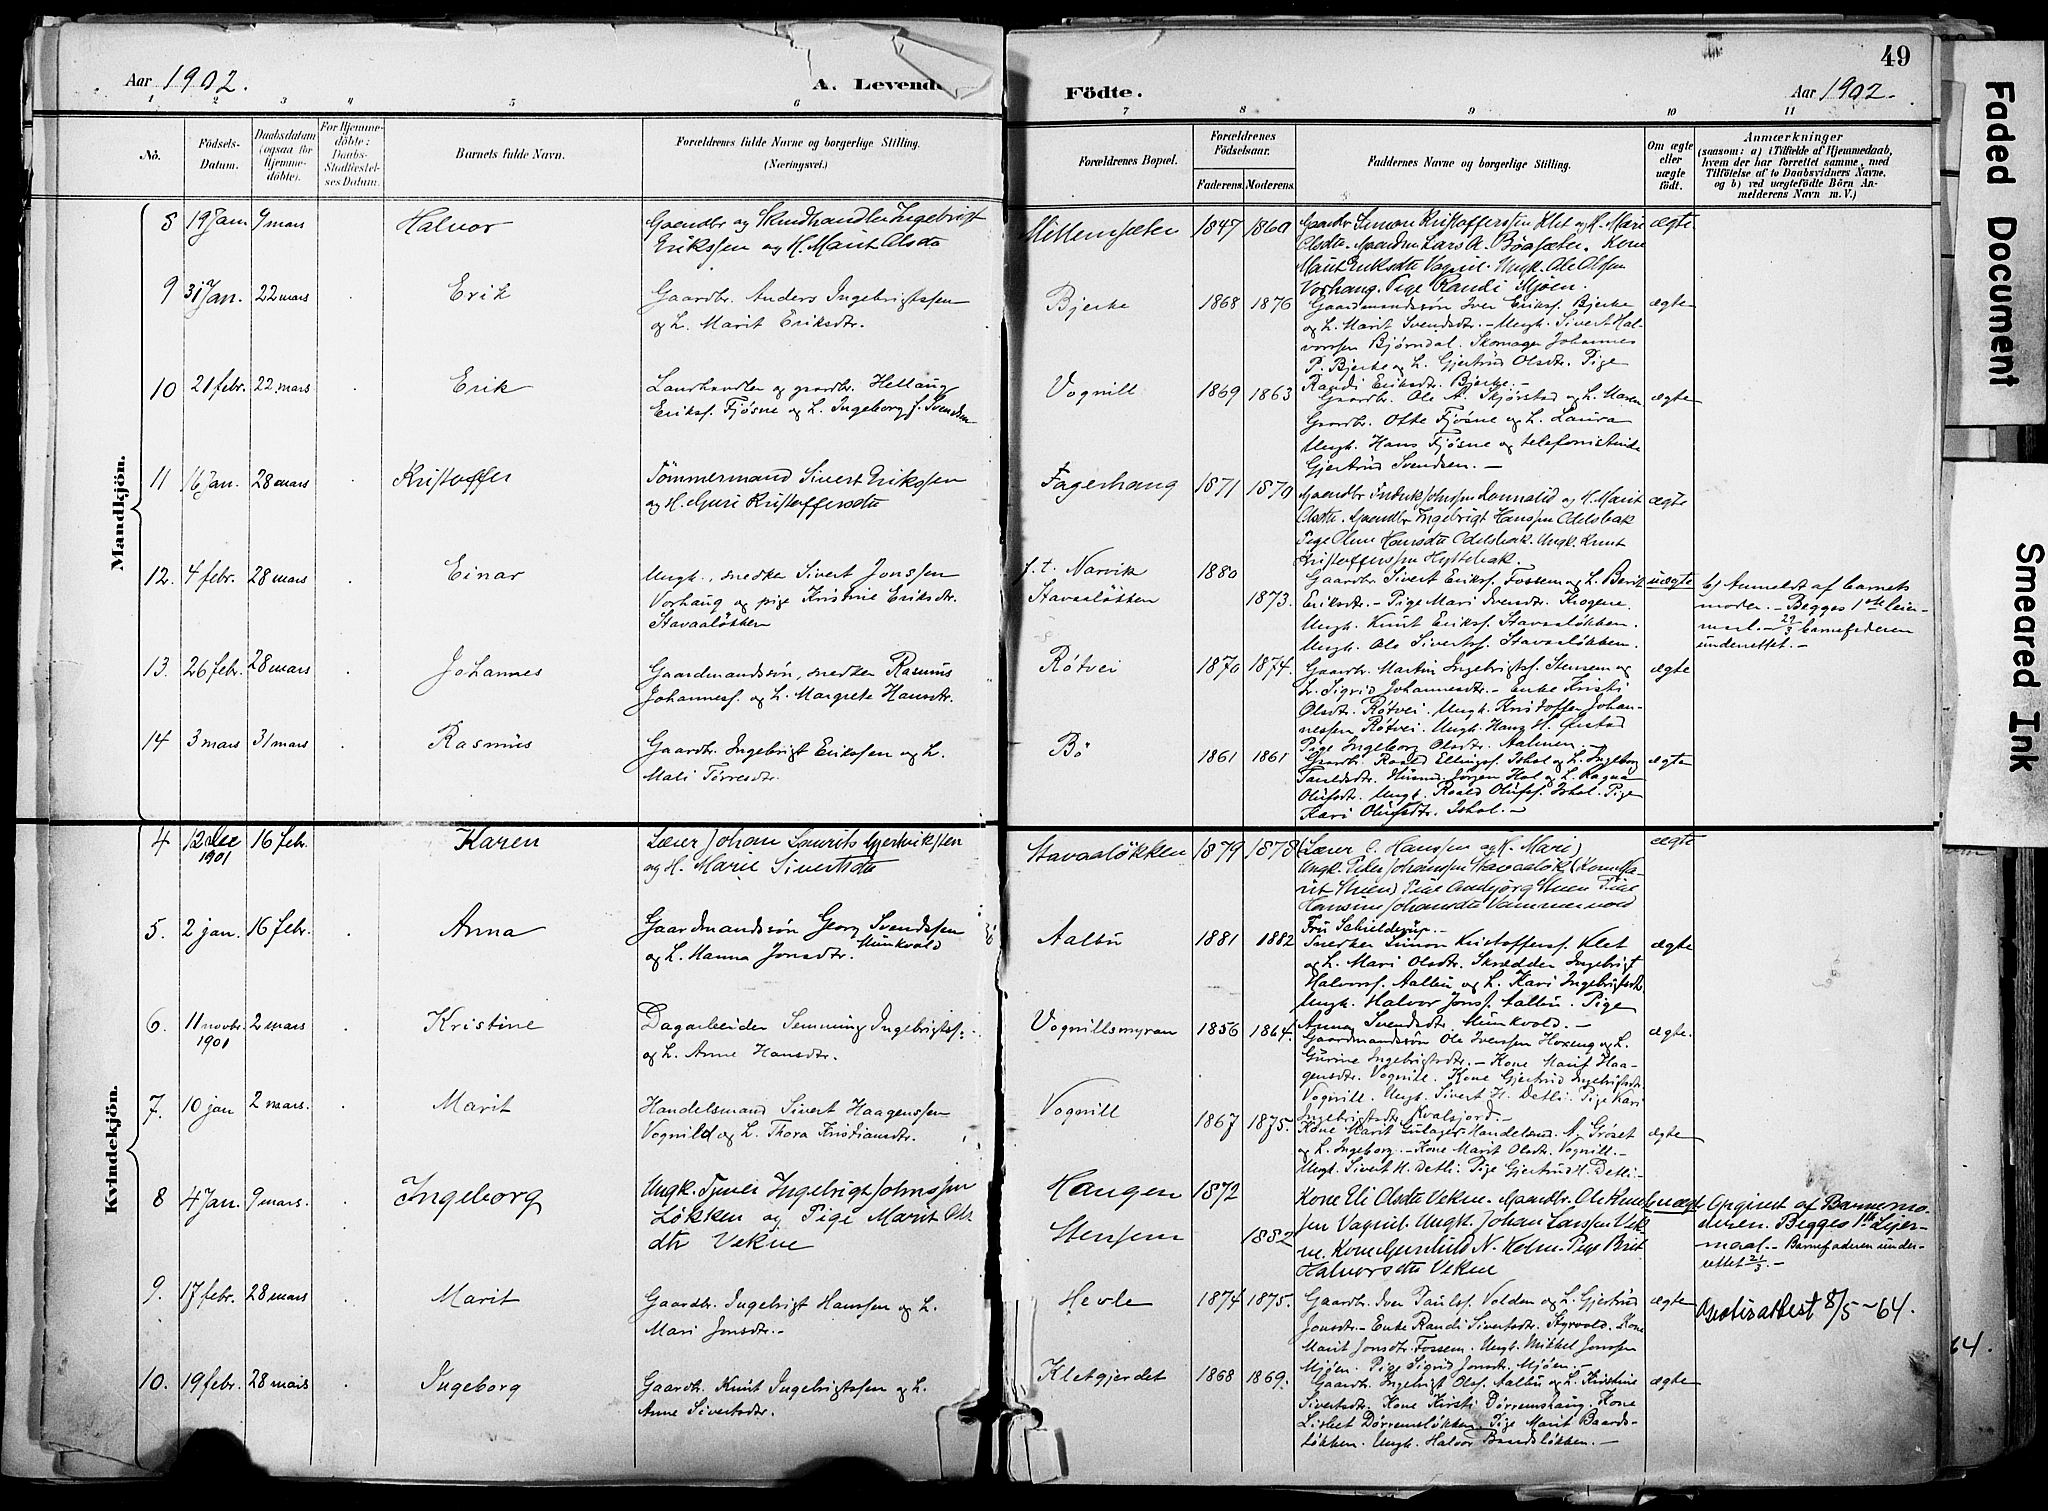 49
Aar 1902.
A. Levende
Födte.
Aar 1902.
1 2 3 4 5 6 7 8 9 10 11
No.
Födsels-
Datum.
Daabsdatum
(ogsaa for
Hjemme-
döbte).
For Hjemme-
döbte:
Daabs-
Stadfæstel-
ses Datum.
Barnets fulde Navn.
Forældrenes fulde Navne og borgerlige Stilling.
(Næringsvei.)
Forældrenes Bopæl.
Forældrenes
Födselsaar.
Faderens. Moderens.
Faddernes Navne og borgerlige Stilling.
Om ægte
eller
uægte
födt.
Anmærkninger
(saasom: a) i Tilfælde af Hjemmedaab,
hvem der har forrettet samme, med
Tilföielse af to Daabsvidners Navne,
og b) ved uægtefödte Börn An-
melderens Navn m. V.)
Mandkjön.
8 19 Jan. 9 mars Halvor
Gaardbr og Skindhandler Ingebrigt
Erikssen og H. Marit Olsdtr
1847
Gaardbr Simon Kristofferssen Klet og H. Mari
Olsdtr. Lars A. Böasæter. Kone
Marit Eriksdtr Vognil. Ungk. Ole Olssen
Vorhaug. Pige Randi Mjøen.
ægte
9 31 Jan. 22 mars Erik
Gaardbr. Anders Ingebrigtssen
og L. Marit Eriksdtr.
Bjerke 1868 1876
Gaardmandssøn Iver Erikss. Bjerke
og L. Marit Svendsdtr. – Ungk. Sivert Hal-
vorssen Bjørndal. Skomager Johannes
P. Bjerke og L. Gjertrud Olsdtr. Pige
Randi Eriksdtr. Bjerke. –
ægte
10 21 febr. 22 mars Erik
Landhandler og gaardbr. Hellaug
Erikss. Fjøsne og L. Ingeborg f. Svendsen
Vognill 1869 1863
Gaardbr. Ole A. Skjørstad og L. Maren
Gaardbr. Otte Fjøsne og L. Laura
Ungk. Hans Fjøsne og telefonistinde
Gjertrud Svendsen. –
ægte
11 16 Jan. 28 mars Kristoffer
Tömmermand Sivert Erikssen
og H. Guri Kristoffersdtr
Fagerhaug 1871 1870
Olsdtr. Gaardbr Ingebrigt Hanssen Odelsbak
Pige Oline Hansdtr Odelsbak. Ungk. Knut
Kristofferssen Hyttebak.
ægte
12. 4 febr. 28 mars Einar
Ungk., snedker Sivert Jonssen
Vorhaug og pige Kristine Eriksdtr.
Stavaaløkken
f. t. Narvik
Stavaaløkken
1880
1873.
Gaardbr. Sivert Erikss. Fossem og L. Berit
Eriksdtr. – Pige Mari Ivensdtr. Krogene.
Ungk. Knut Erikss. Stavaaløkken.
Ungk. Ole Sivertss. Stavaaløkken.
uægte
b) Anmeldt af barnets
moder. – Begges 1ste leier-
maal. – 29/3 barnefaderen
underrettet. –
13. 26 febr. 28 mars Johannes
Gaardmandssøn, snedker Rasmus
Johanness. og L. Margrete Hansdtr.
Røtvei 1870 1874.
Gaardbr. Martin Ingebrigtss. Stensem og
L. Sigrid Johannesdtr. – Enke Kristi
Olsdtr. Røtvei. Ungk. Kristoffer Johan-
nessen Røtvei. Ungk. Hans H. Ørstad
Pige Ingeborg Olsdtr. Aalmen. –
ægte
14 3 mars 31 mars Rasmus
Gaardbr. Ingebrigt Erikssen og L.
Mali Torresdtr.
Bö 1861 1861
Gaardbr. Roald Ellingss. Ishol og L. Ingeborg
Jørgen Hol og L. Ragna
Olufsdtr. Ungk. Roald Olufss. Ishol. Pige
Kari Olufsdtr. Ishol. –
ægte
Kvindekjön.
4 12 dec
1901
16 febr. Karen
Lærer Johan Laurits
og H. Marie Sivertsdtr
Stavaaløkken 1879 1878
(Lærer C. Hanssen og H. Mari)
Ungk. Peder Johanssen
Fru Schielderup. –
ægte
5. 2 jan. 16 febr. Anna
Gaardmandssön Georg Svendssen
Munkvold
og L. Hanna Jonsdtr.
Aalbu 1881 1882
Snedker Simon Kristofferss. Klet
og L. Mari Olsdtr. Skrædder Ingebrigt
Halvorss. Aalbu og L. Kari Ingebrigtsdtr.
Ungk. Halvor Jonss. Aalbu. Pige
Anna Svendsdtr. Munkvold. –
ægte
6. 11 novbr.
1901
2 mars Kristine
Dagarbeider Semming Ingebrigtss.
og L. Anne Hansdtr.
Vognillsmyran 1856 1864.
Gaardmandssøn Ole Iverssen Hoxeng og L.
Gurine Ingebrigtsdtr. – Kone Marit Haa-
gensdtr. Vognill. Kone Gjertrud Ingebrigtsdtr.
Vognill. Ungk. Sivert H. Detli. Pige Kari
Ingebrigtsdtr. Kvalsjord. –
ægte.
7. 10 jan 2 mars. Marit
Handelsmand Sivert Haagenssen
Vognild og L. Thora Kristiansdtr.
Vognill 1867 1875.
Kone Marit Gulager. Handelsmd. A. Grøset
og L. Ingeborg. – Kone Marit Olsdtr. Vognill. –
Ungk. Sivert H. Detli. Pige Gjertrud H. Detli. –
ægte
8 4 Jan. 9 mars. Ingeborg
Ungk. Tjener Ingebrigt Johnssen
Løkken og Pige Marit Ols
dtr Vekne
Haugen 1872
Stensem 1882
Kone Eli Olsdtr Vekne.
Vognil. Ungk. Johan Larssen Vek
ne. Kone N. Holm. Pige Brit
Halvorsdtr Vekne
uægte
Opgivet af Barnemo-
deren. Begges 1ste Leier-
maal. – Barnefaderen under-
rettet 21/3. –
9. 17 febr. 28 mars Marit
Gaardbr. Ingebrigt Hanssen og L.
Mari Jonsdtr. –
Hevle 1874 1875.
Gaardbr. Iver Paulss. Volden og L. Gjertrud
Jonsdtr. – Enke Randi Sivertsdtr. Styrvold. Kone
Marit Jonsdtr. Fossem. Ungk. Mikkel Jonssen
Mjöen. Pige Sigrid Jonsdtr. Mjöen. –
ægte
8/5 – 64.
10. 19 febr. 28 mars Ingeborg
Gaardbr. Knut Ingebrigtssen og L.
Anne Sivertsdtr.
Kletgjerdet 1868 1869.
Gaardbr. Ingebrigt Olss. Aalbu og L. Kristine
Sivertsdtr. Kone Kirsti Dørremshaug. Kone
Lisbet Dørremsløkken. Pige Marit Baards-
løkken. Ungk. Halvor Baardsløkken. –
ægte
64.
Faded Document
Smeared Ink